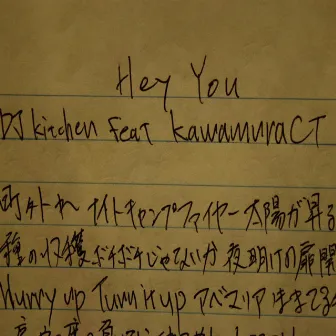 Hey You
DJ kitchen feat kawamuraCT
町外れ ナイトキャンプファイヤー 太陽が昇る
種の収穫 ボチボチじゃないか 夜明けの扉開
Hurry up Turn it up アベマリア